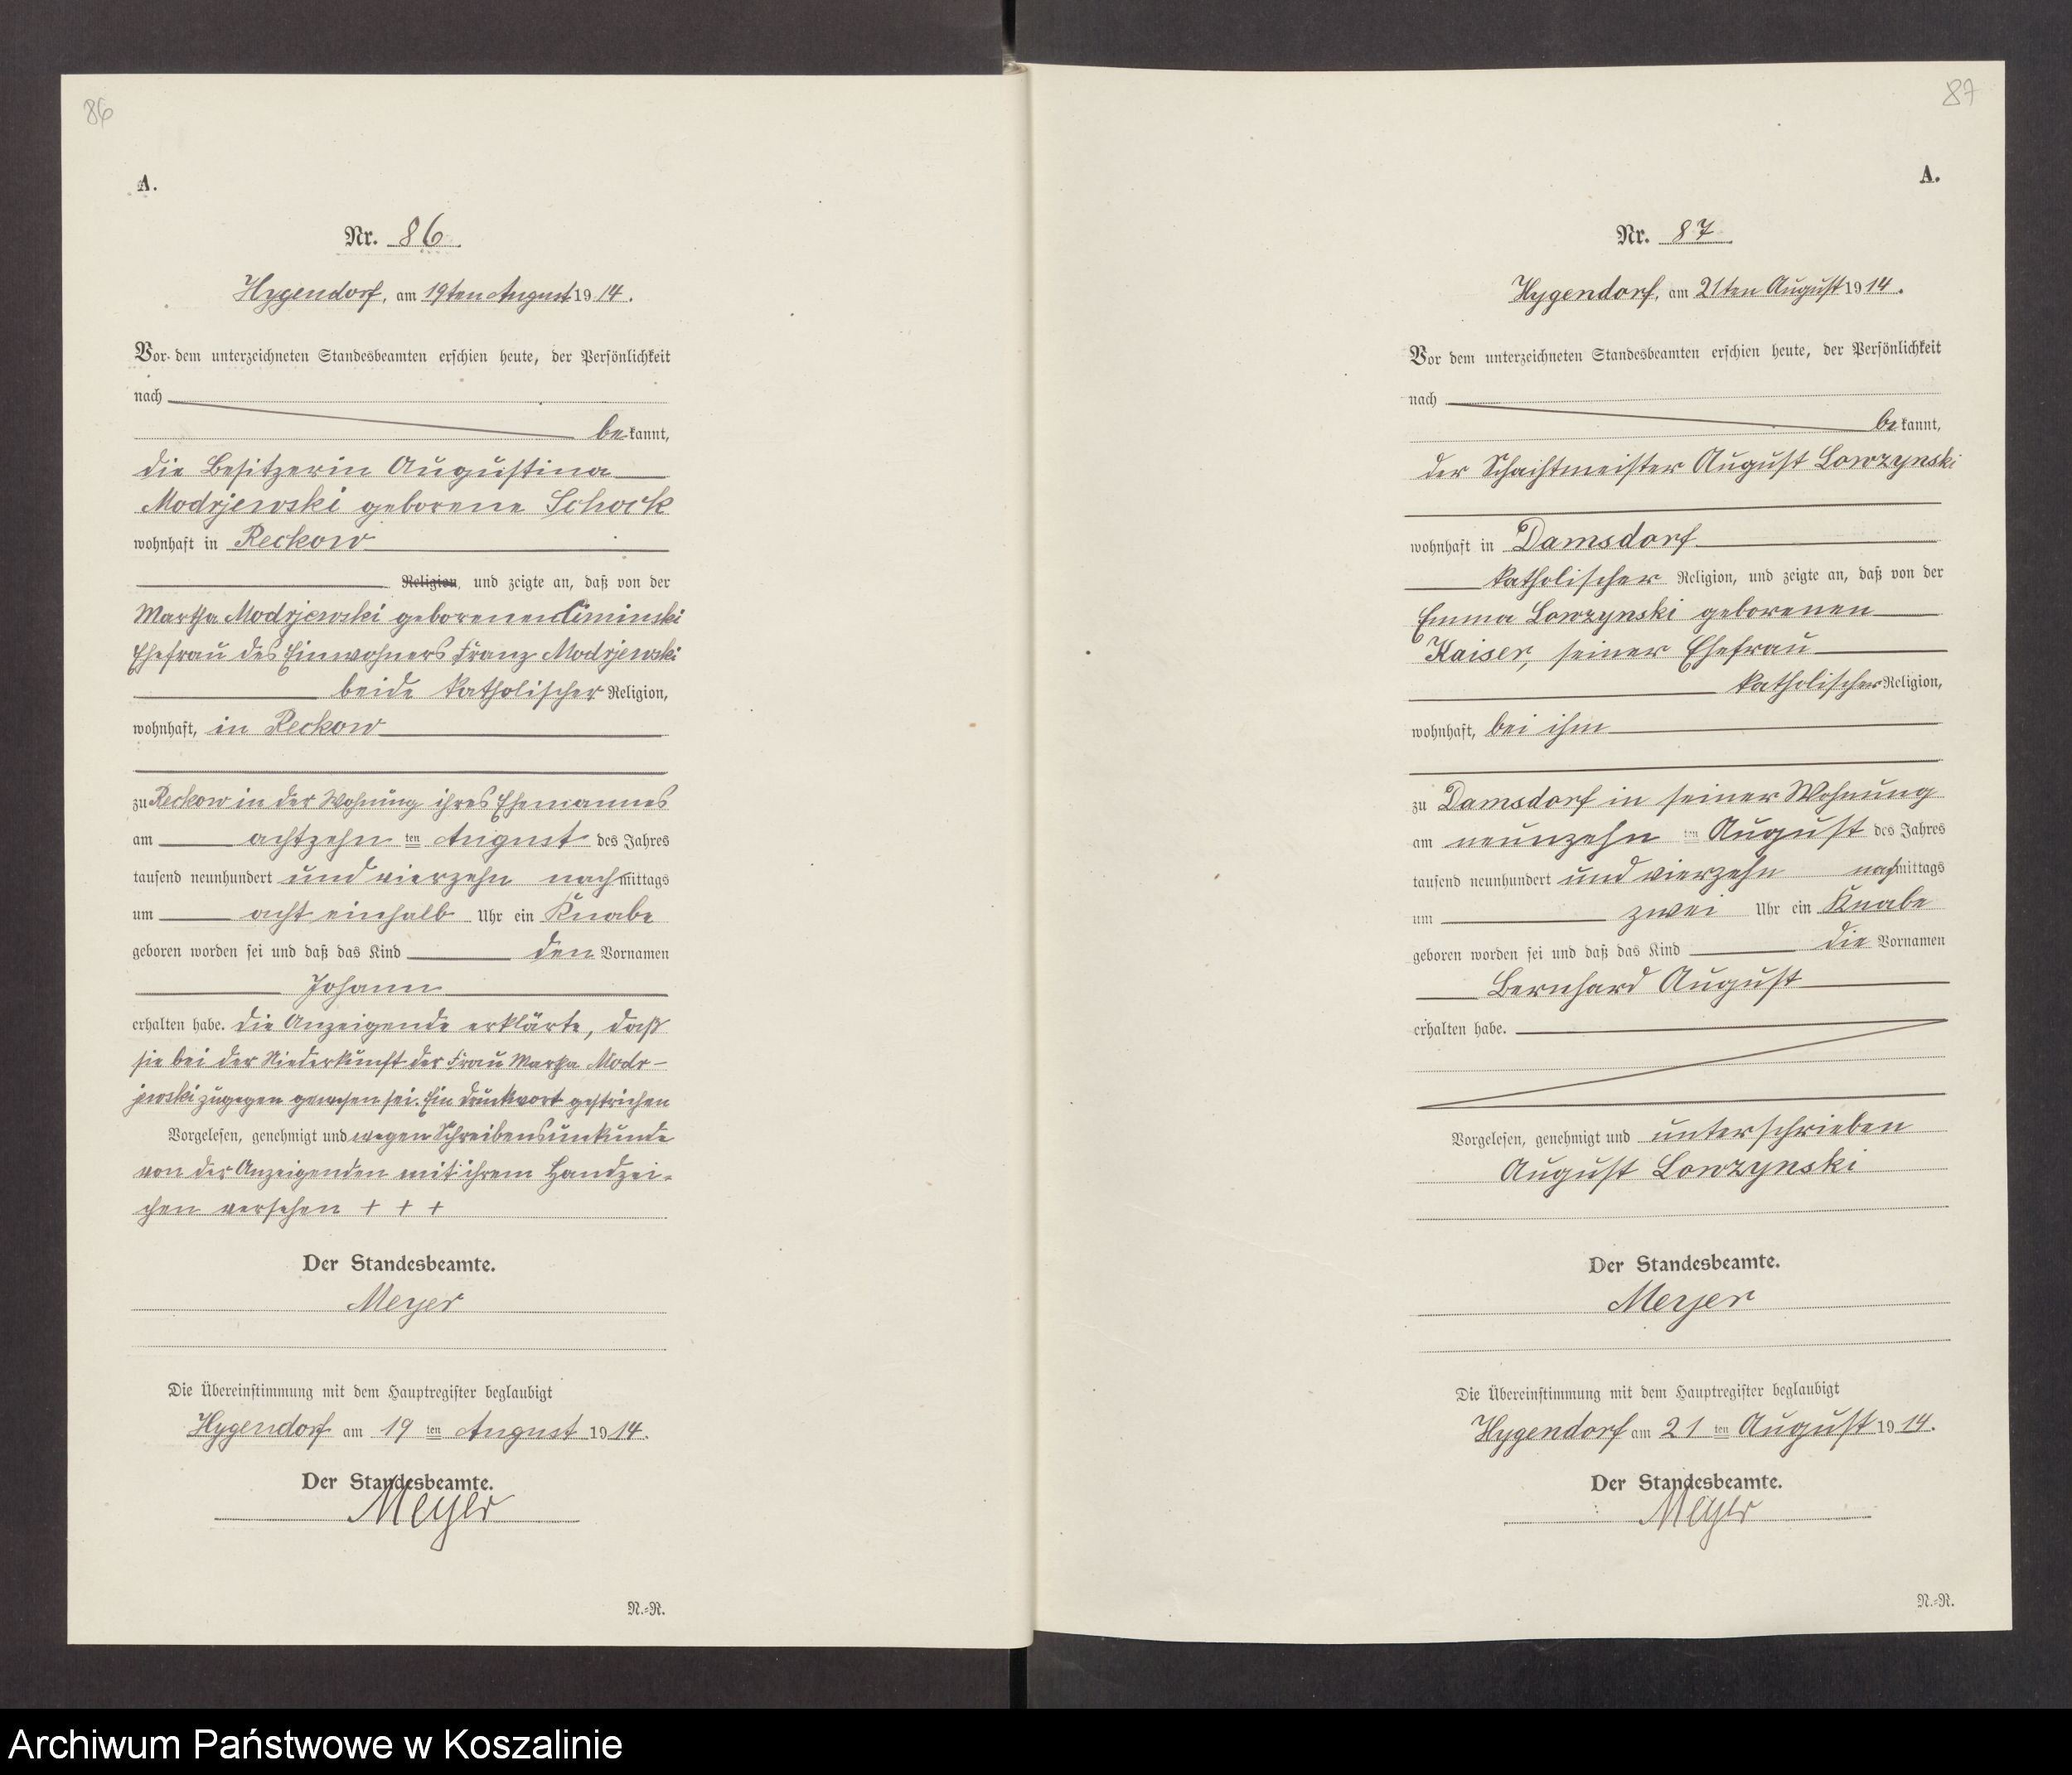 86
A.
Nr. 86.
Hygendorf, am 19ten August 1914.
Vor dem unterzeichneten Standesbeamten erschien heute, der Persönlichkeit
nach
bekannt,
die Besitzerin Augustina
Modrjewski geborene Schock
wohnhaft in Reckow
Religion, und zeigte an, daß von der
Martha Modrjewski geborenen Ciminski
Ehefrau des Einwohners Franz Modrjewski
beide katholischer Religion,
wohnhaft, in Reckow
zu Reckow in der Wohnung ihres Ehemannes
am achtzehn ten August des Jahres
tausend neunhundert und vierzehn nachmittags
um acht einhalb Uhr ein Knabe
geboren worden sei und daß das Kind den Vornamen
Johann
erhalten habe. Die Anzeigende erklärte, daß
sie bei der Niederkunft der Frau Martha Modr-
jewski zugegen gewesen sei. Ein Druckwort gestrichen
Vorgelesen, genehmigt und wegen Schreibensunkunde
von der Anzeigenden mit ihrem Handzei-
chen versehen + + +
Der Standesbeamte.
Meyer
Die Übereinstimmung mit dem Hauptregister beglaubigt
Hygendorf am 19 ten August 1914.
Der Standesbeamte.
Meyer
N.=R.
87
A.
Nr. 87.
Hygendorf, am 21ten August 1914.
Vor dem unterzeichneten Standesbeamten erschien heute, der Persönlichkeit
nach
bekannt,
der Schachtmeister August Lowzynski
wohnhaft in Damsdorf
katholischer Religion, und zeigte an, daß von der
Emma Lowzynski geborenen
Kaiser, seiner Ehefrau
katholischer Religion,
wohnhaft, bei ihm
zu Damsdorf in seiner Wohnung
am neunzehn ten August des Jahres
tausend neunhundert und vierzehn nachmittags
um zwei Uhr ein Knabe
geboren worden sei und daß das Kind die Vornamen
Bernhard August
erhalten habe.
Vorgelesen, genehmigt und unterschrieben
August Lowzynski
Der Standesbeamte.
Meyer
Die Übereinstimmung mit dem Hauptregister beglaubigt
Hygendorf am 21 ten August 1914.
Der Standesbeamte.
Meyer
N.=R.
Archiwum Państwowe w Koszalinie